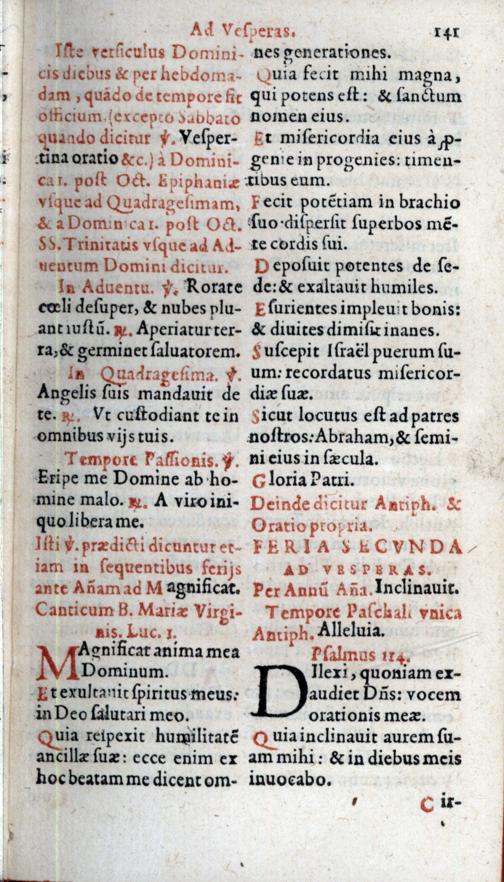 Ad Vesperas. 141
Iste versiculus Domini-
cis diebus & per hebdoma-
dam, quãdo de tempore fit
officium. (excepto Sabbato
quando dicitur ℣. Vesper-
tina oratio &c.) à Domini-
ca 1. post Oct. Epiphaniæ
vsque ad Quadragesimam,
& a Dominica 1. post Oct.
SS. Trinitatis vsque ad Ad-
uentum Domini dicitur.
In Aduentu. ℣. Rorate
cœli desuper, & nubes plu-
ant iustũ. ℟. Aperiatur ter-
ra, & germinet saluatorem.
In Quadragesima. ℣.
Angelis suis mandauit de
te. ℟. Vt custodiant te in
omnibus vijs tuis.
Tempore Passionis. ℣.
Eripe me Domine ab ho-
mine malo. ℟. A viro ini-
quo libera me.
Isti ℣. prædicti dicuntur et-
iam in sequentibus ferijs
ante Añam ad Magnificat.
Canticum B. Mariæ Virgi-
nis. Luc. 1.
Magnificat anima mea
Dominum.
Et exultauit spiritus meus:
in Deo salutari meo.
Quia respexit humilitatẽ
ancillæ suæ: ecce enim ex
hoc beatam me dicent om-
nes generationes.
Quia fecit mihi magna,
qui potens est: & sanctum
nomen eius.
Et misericordia eius à ꝓ-
genie in progenies: timen-
tibus eum.
Fecit potẽtiam in brachio
suo: dispersit superbos mẽ-
te cordis sui.
Deposuit potentes de se-
de: & exaltauit humiles.
Esurientes impleuit bonis:
& diuites dimisit inanes.
Suscepit Israël puerum su-
um: recordatus misericor-
diæ suæ.
Sicut locutus est ad patres
nostros: Abraham, & semi-
ni eius in sæcula.
Gloria Patri.
Deinde dicitur Antiph. &
Oratio propria.
FERIA SECVNDA
AD VESPERAS.
Per Annũ Aña. Inclinauit.
Tempore Paschali vnica
Antiph. Alleluia.
Psalmus 114.
Dilexi, quoniam ex-
audiet Dñs: vocem
orationis meæ.
Quia inclinauit aurem su-
am mihi: & in diebus meis
inuocabo.
Cir-